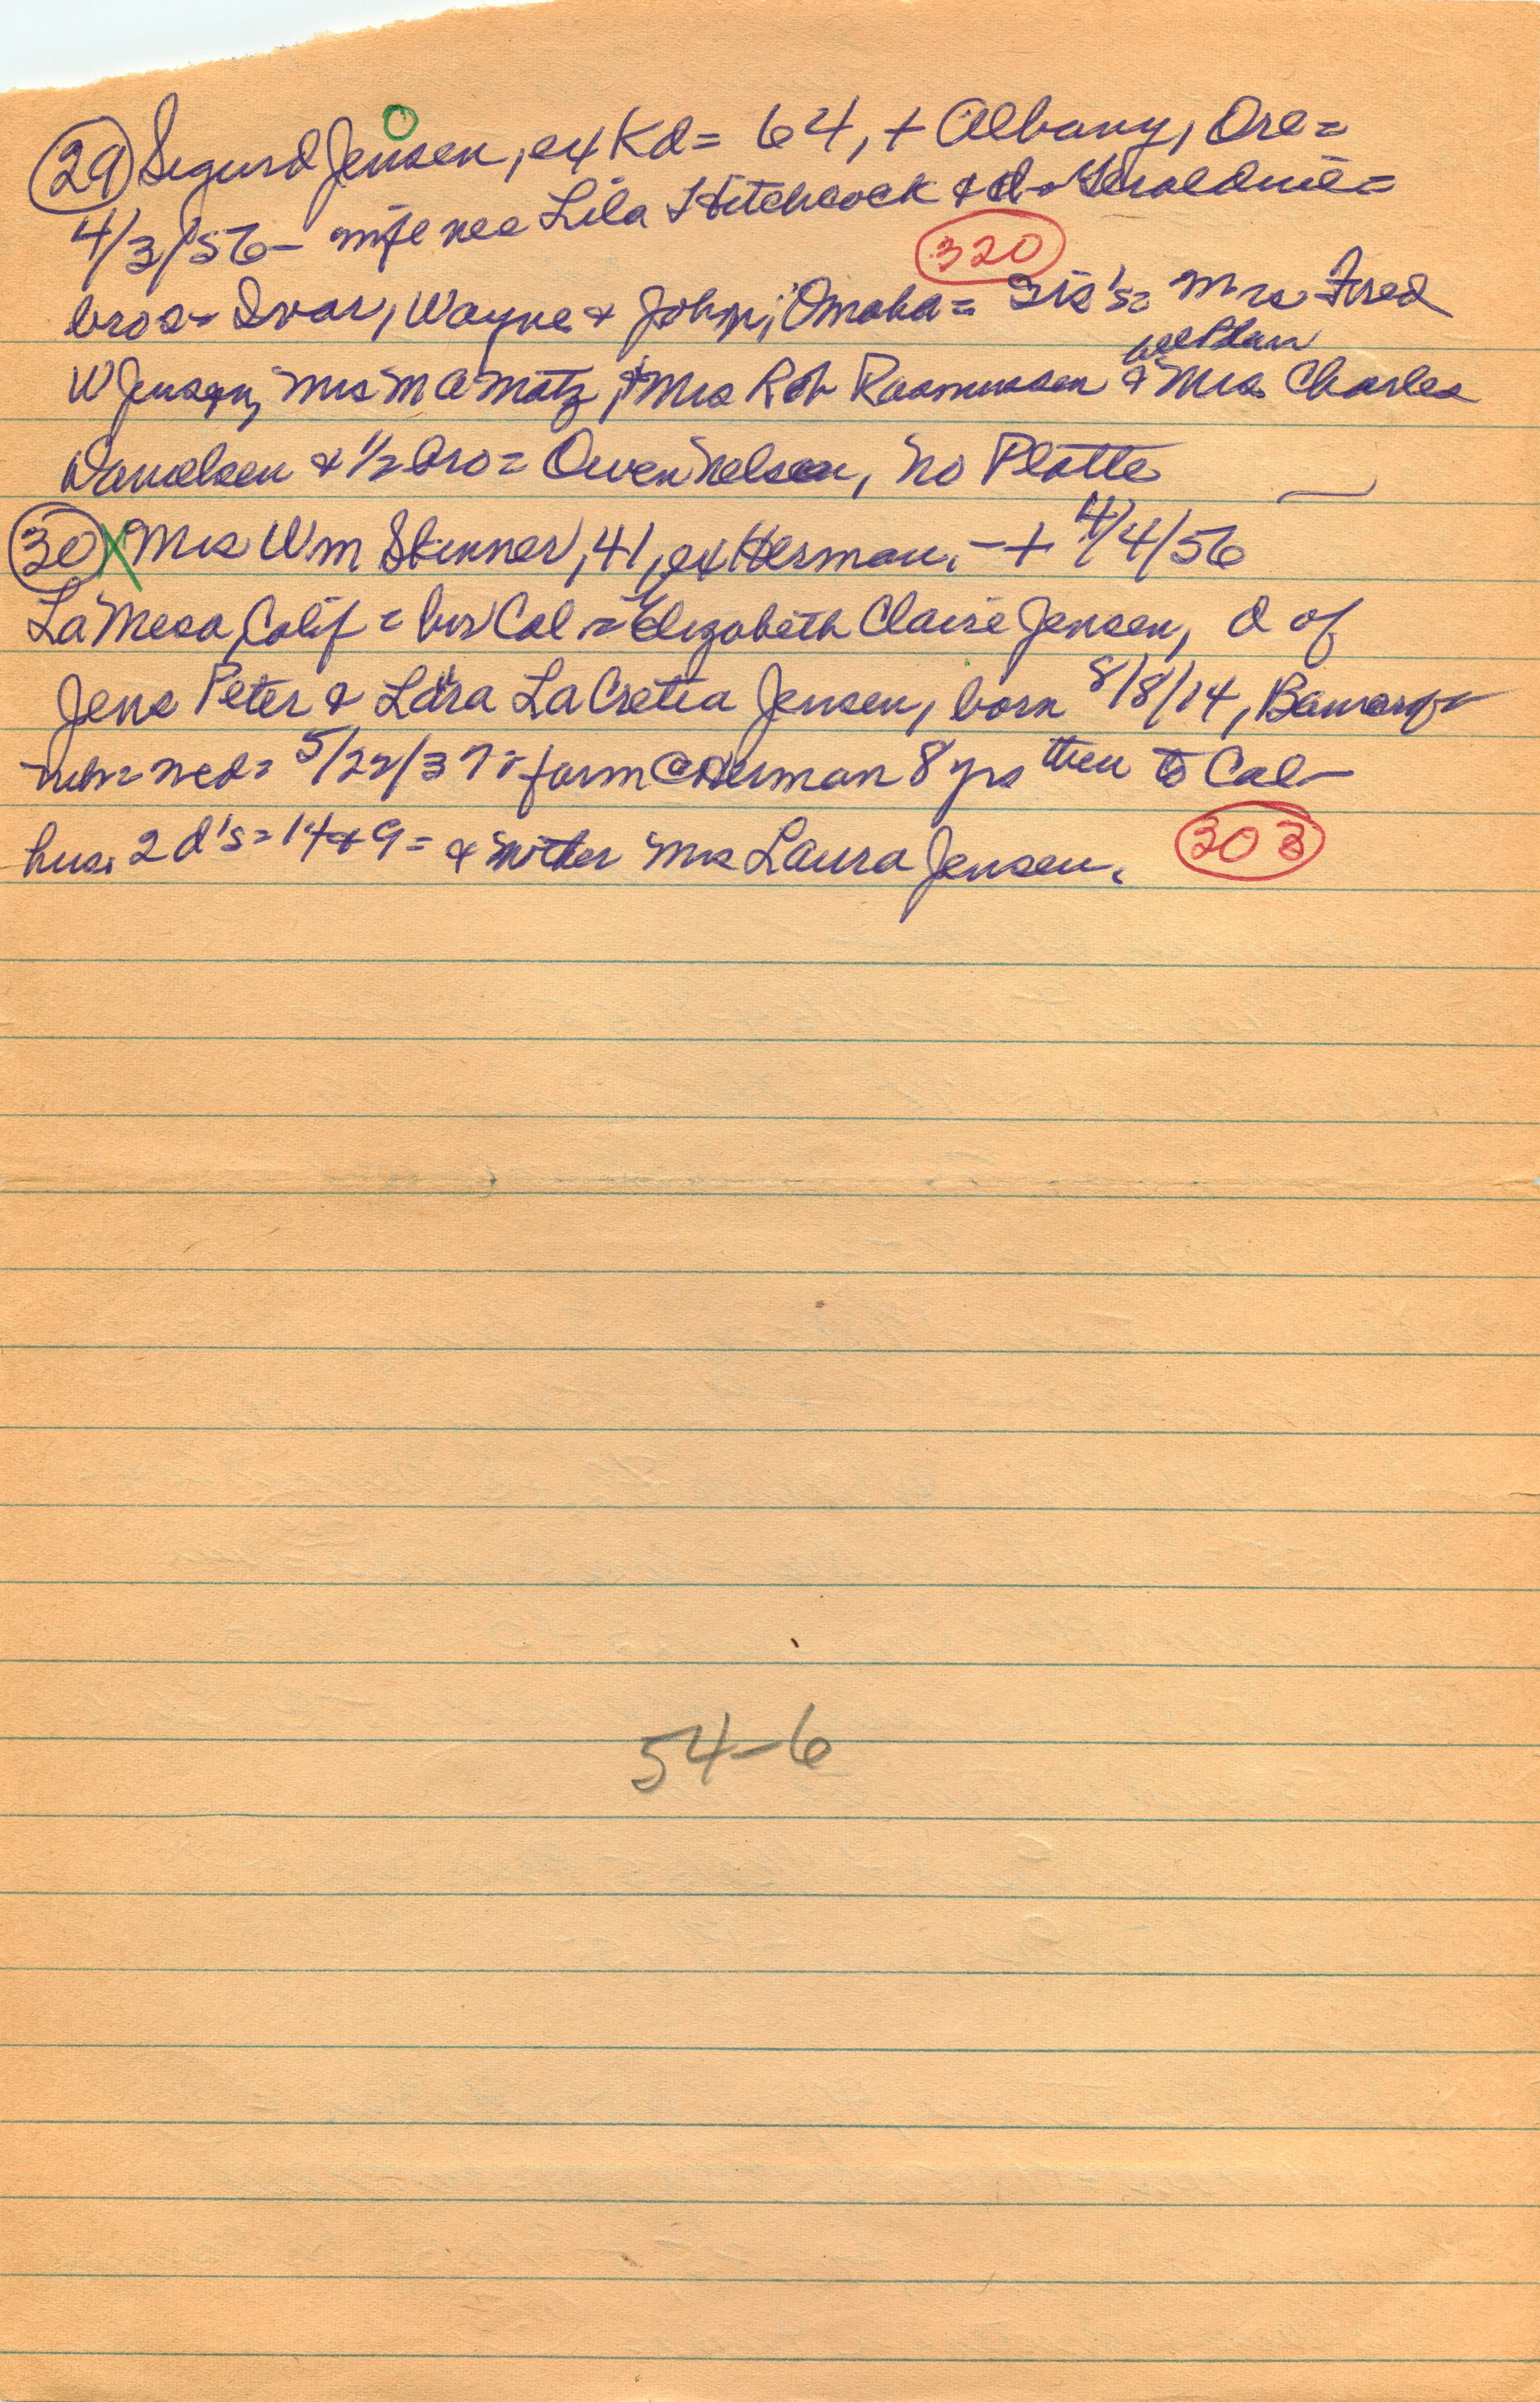 29 Sigurd Jensen, ex Kd = 64, + Albany, Ore =
4/3/56 - wife nee Lila Hitchcock & d = Geraldine =
320
bros = Ivar, Wayne & John, Omaha = Sis's = Mrs Fred
all Blair
W Jensen, Mrs M A Matz, & Mrs Rob Rasmussen & Mrs Charles
Danielsen & 1/2 bro = Owen Nelsen, No Platte
30 X Mrs Wm Skinner, 41, ex Herman, - + 4/4/56
La Mesa, Calif = bur Cal = Elizabeth Claire Jensen, d of
Jens Peter & Lara LaCretia Jensen, born 8/8/14,
Neb = wed = 5/22/37 = farm @ Herman 8 yrs then to Cal -
hus. 2 d's = 14 & 9 = & mother Mrs Laura Jensen.
303
54-6